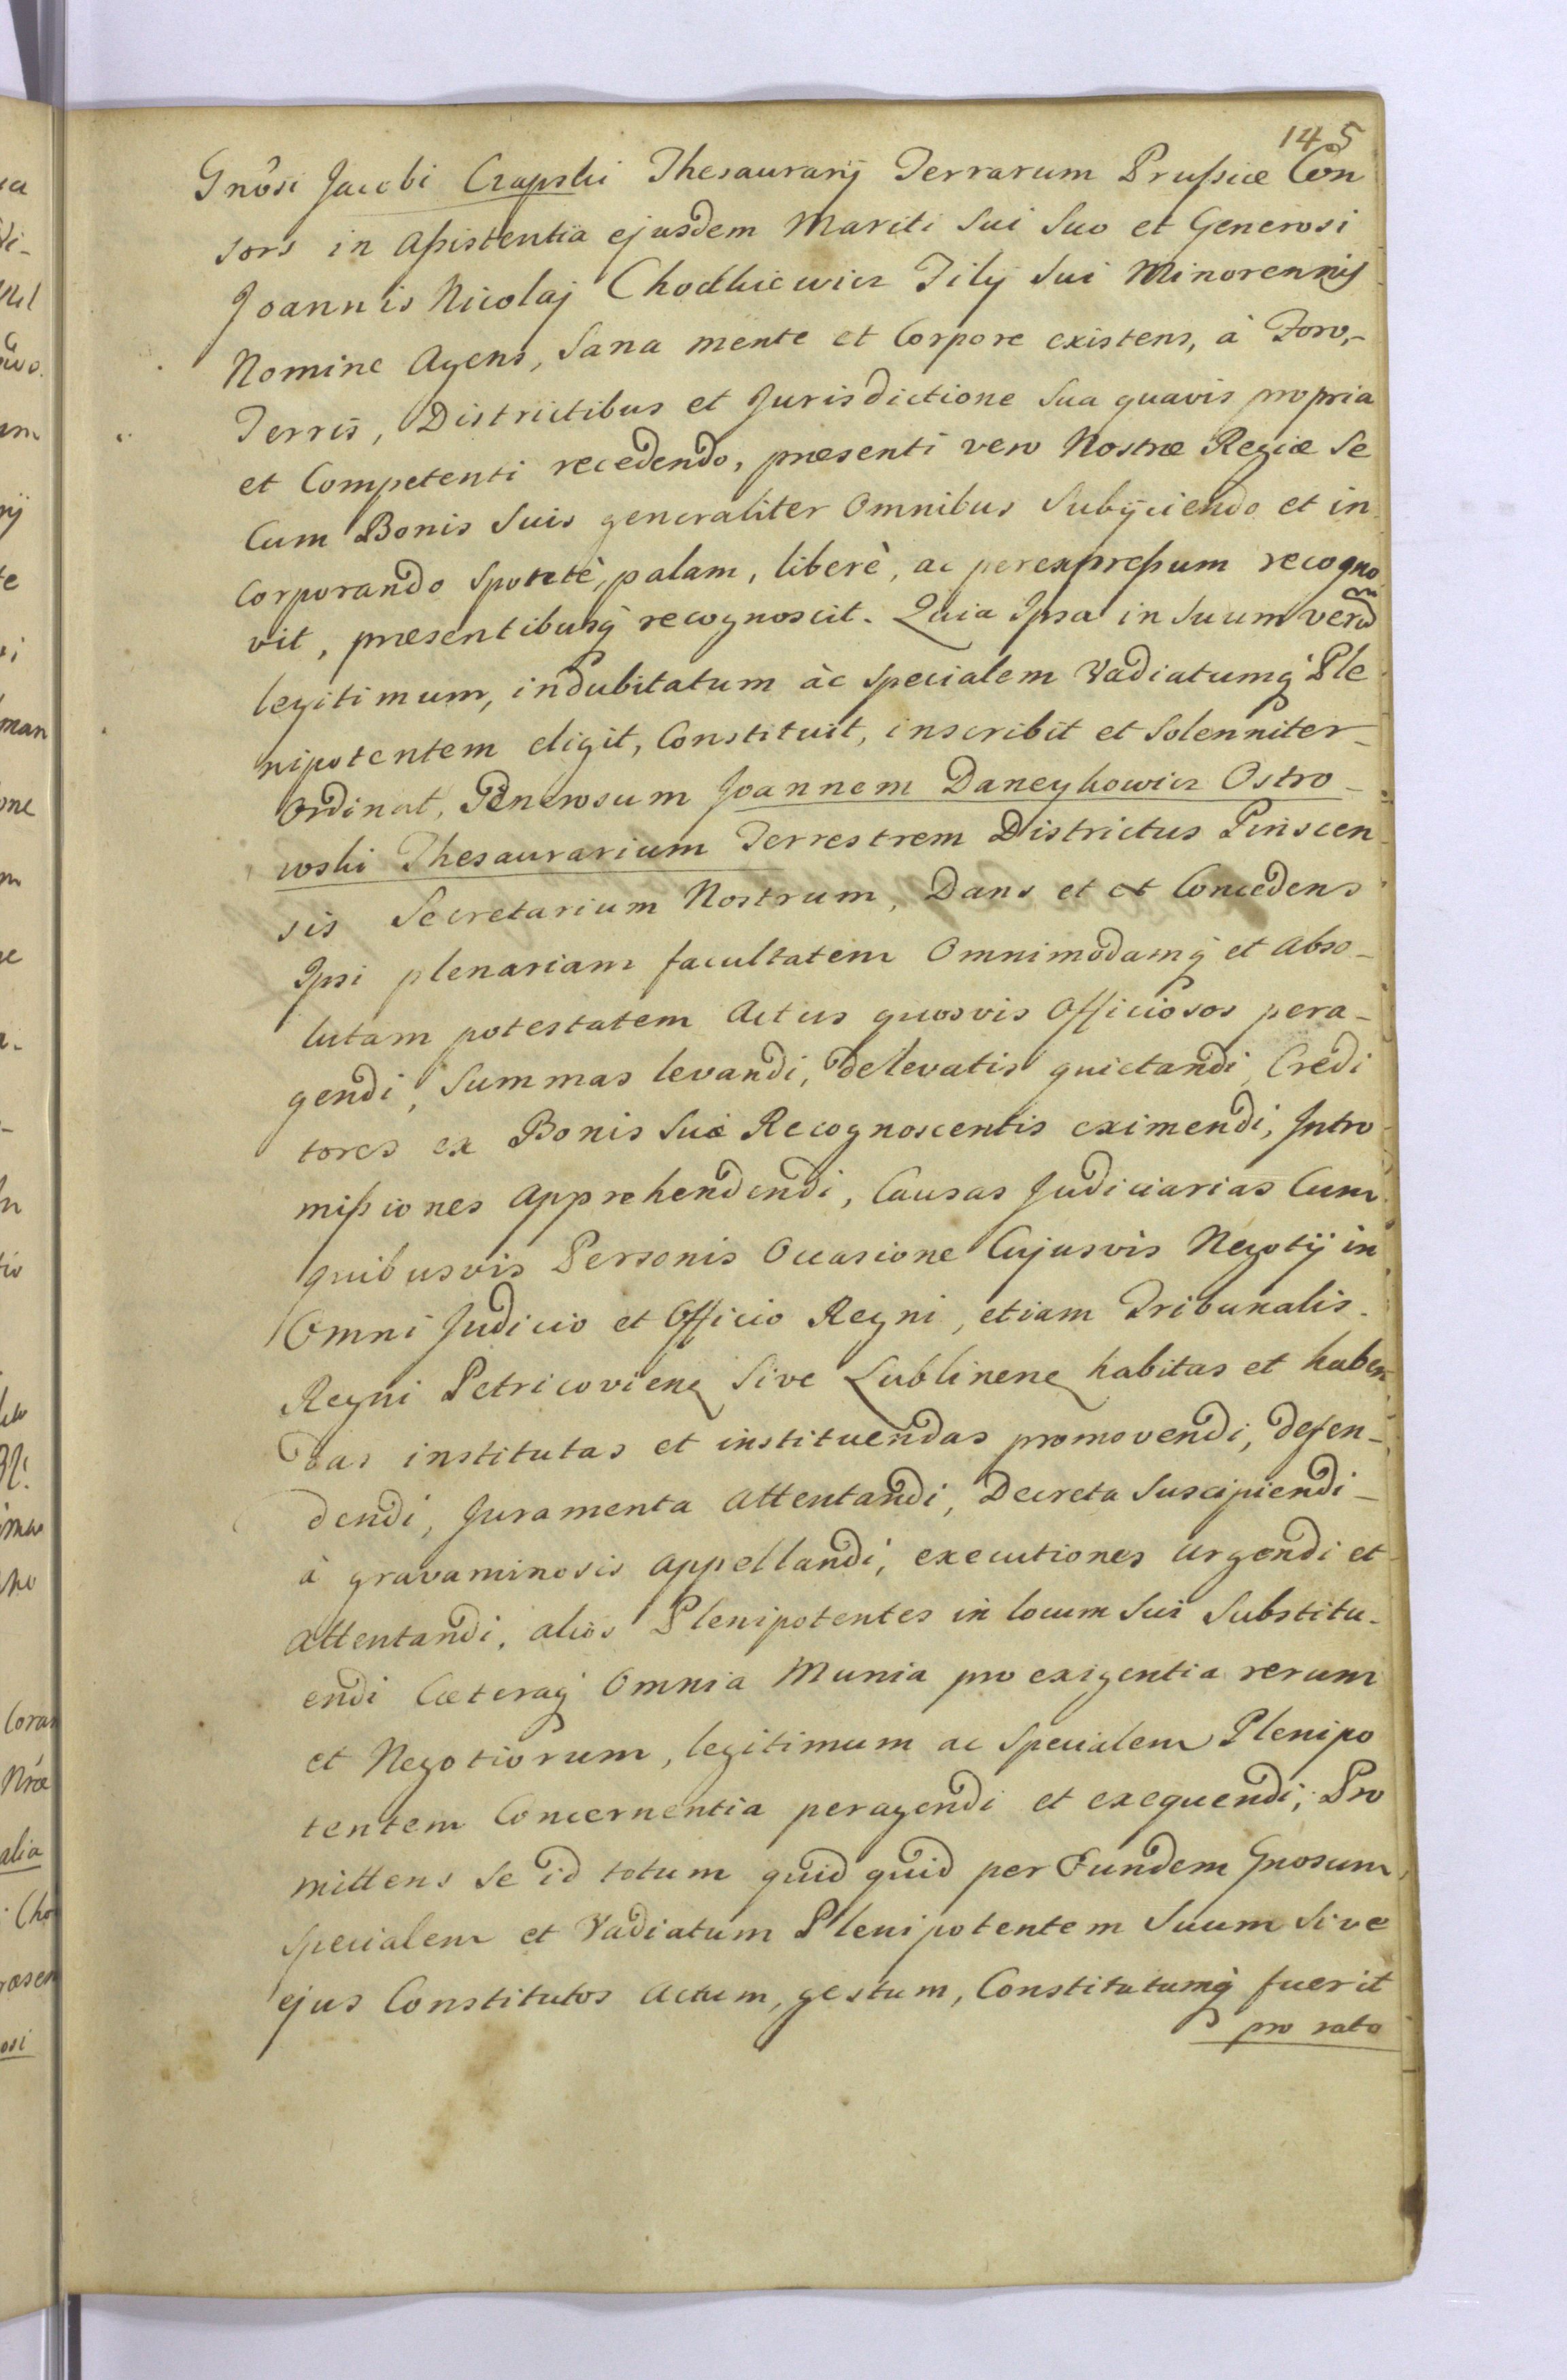 145
Gnôsi Jacobi Czapski Thesaurarij Terrarum Prussiæ Con
sors in assistentia ejusdem Mariti sui suo et Generosi
Joannis Nicolaj Chodkiewicz Filij sui Minorennis
Nomine Agens, sana mente et Corpore existens, à Foro,-
Terris, Districtibus et Jurisdictione sua quavis propria
et Competenti recedendo, præsenti vero Nostræ Regiæ se
Cum Bonis suis generaliter Omnibus subijciendo et in
corporando spontè, palam, liberè, ac per expressum recogno
vit, præsentibusq́ recognoscit. Quia Ipsa in suum verum
legitimum, indubitatum àc specialem Vadiatumq́ Ple
nipotentem eligit, Constituit, inscribit et solenniter-
Ordinat, Generosum Joannem Daneykowicz Ostro-
wski Thesaurarium Terrestrem Districtus Pinscen
sis Secretarium Nostrum, Dans et et Concedens
Ipsi plenariam facultatem Omnimodamq́ et abso-
lutam potestatem Actus quosvis Officiosos pera-
gendi, summas levandi, de levatis quietandi, Credi
tores ex Bonis suæ Recognoscentis eximendi, Intro
missiones apprehendendi, Causas Judiciarias Cum
quibusvis Personis Occasione Cujusvis Negotij in
Omni Judicio et Officio Regni, etiam Tribunalis.
Regni Petricovien̄ sive Lublinen̄ habitas et haben
das institutas et instituendas promovendi, defen-
dendi, Juramenta attentandi, Decreta suscipiendi-
à gravaminosis appellandi, executiones urgendi et
attentandi, alios Plenipotentes in locum sui substitu-
endi Cæteraq́ Omnia Munia pro exigentia rerum
et Negotiorum, legitimum ac specialem Plenipo
tentem Concernentia peragendi et exequendi; Pro
mittens se id totum quid quid per Eundem Gnosum
specialem et Vadiatum Plenipotentem suum sive
ejus Constitutos actum, gestum, Constitutumq́ fuerit
pro rato